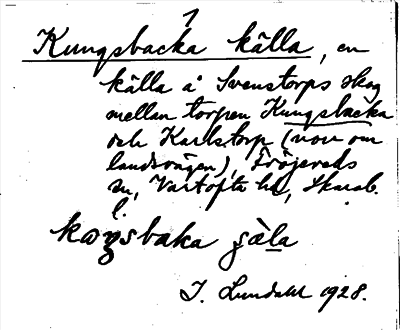 1
Kungsbacka källa, en
källa å Svenstorps skog
mellan torpen Kungsbacka
och Karlstorp (norr om
landsvägen), Fröjereds
sn, Vartofta hd, Skarab.
l.
J. Lundahl 1928.